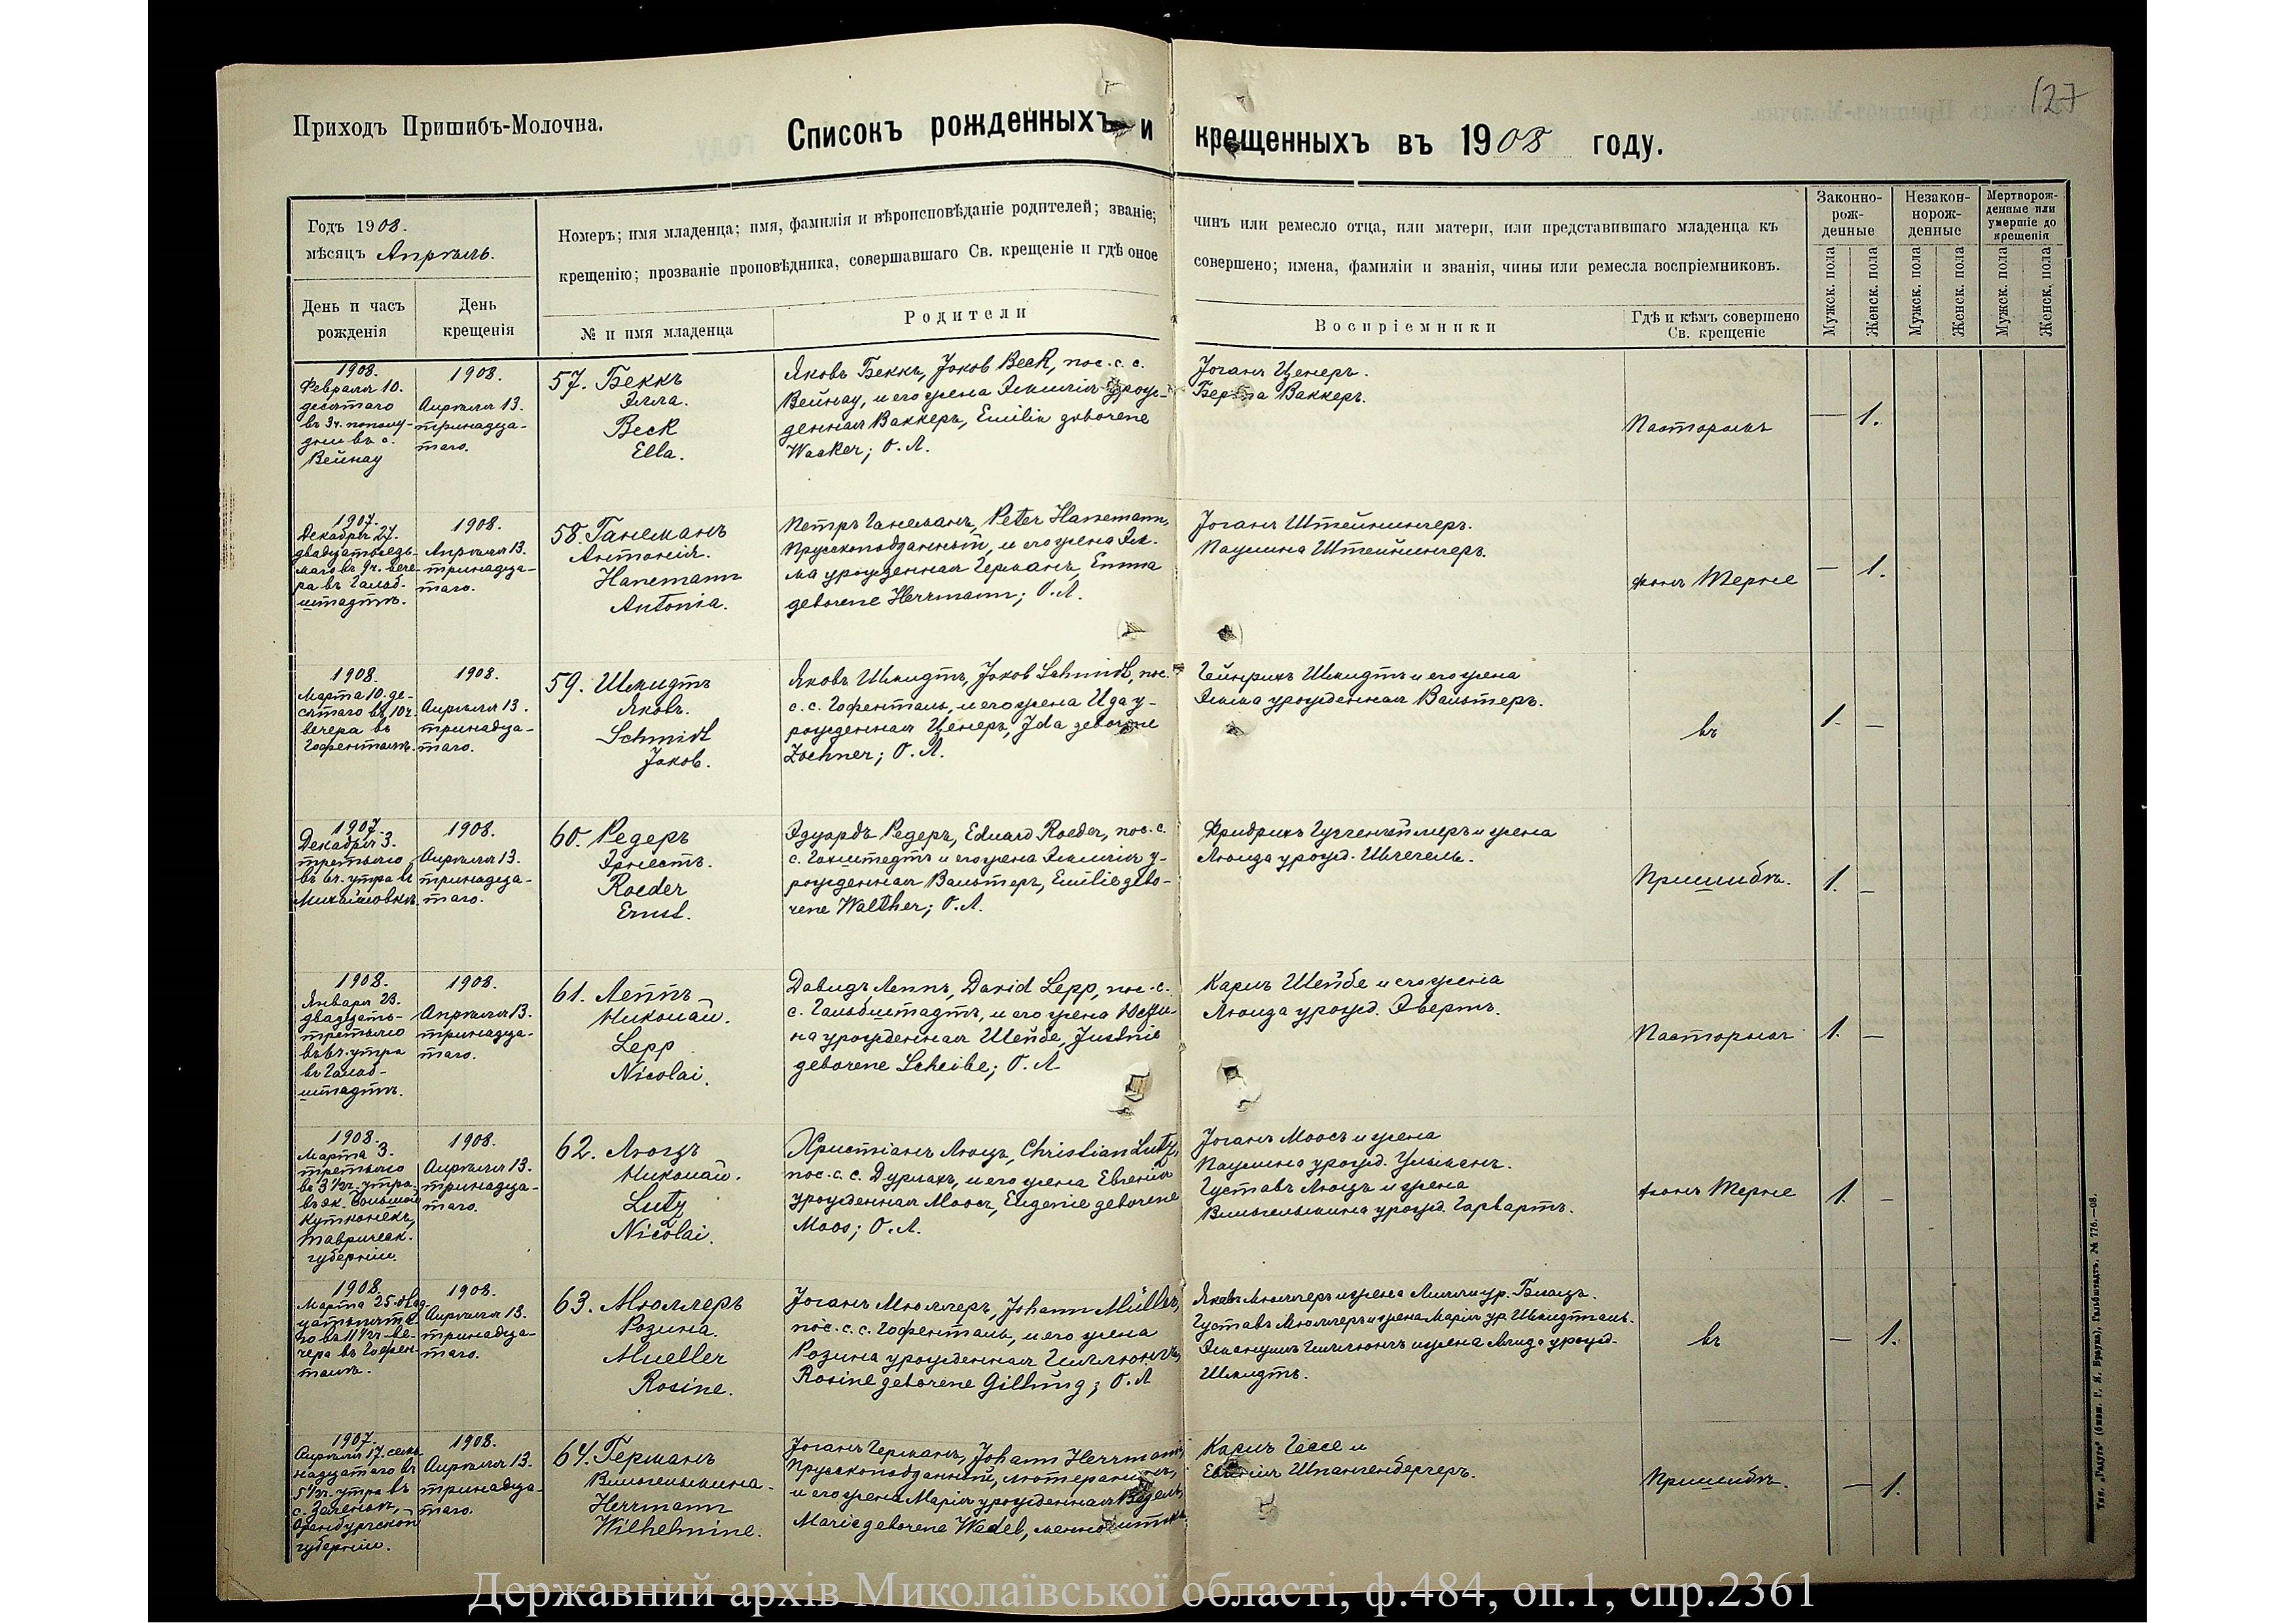 127
Приходъ Пришибъ-Молочна.
Списокъ рожденныхъ и крещенныхъ въ 1908 году.
Годъ 1908.
мѣсяцъ Апрѣль.
День и часъ рожденія
День крещенія
Номеръ; имя младенца; имя, фамилія и вѣроисповѣданіе родителей; званіе; чинъ или ремесло отца, или матери, или представившаго младенца къ
крещенію; прозваніе проповѣдника, совершавшаго Св. крещеніе и гдѣ оное совершено; имена, фамиліи и званія, чины или ремесла воспріемниковъ.
№ и имя младенца
Родители
Воспріемники
Гдѣ и кѣмъ совершено
Св. крещеніе
Законно-
рож-
денные
Незакон-
норож-
денные
Мертворож-
денные или
умершіе до
крещенія
Мужск. пола
Женск. пола
Мужск. пола
Женск. пола
Мужск. пола
Женск. пола
1908.
Февраля 10.
десятаго
въ 3ч. пополу-
дни въ с.
Вейнау
1908.
Апрѣля 13.
тринадца-
таго.
57. Беккъ
Элла.
Beck
Ella.
Яковъ Беккъ, Jakob Beck, пос. с. с.
Вейнау, и его жена Эмилія урож-
денная Ваккеръ, Emilie geborene
Wacker; О. Л.
Іоганъ Ценеръ.
Берта Ваккеръ.
Пасторомъ
— 1.
1907.
Декабря 27.
двадцатьседь-
маго въ 9ч. вече-
ра въ Гальб-
штадтъ.
1908.
Апрѣля 13.
тринадца-
таго.
58. Ганеманъ
Антонія.
Hanemann
Antonia.
Петръ Ганеманъ, Peter Hanemann,
прусскоподданный, и его жена Эм-
ма урожденная Германъ, Emma
geborene Herrmann; О. Л.
Іоганъ Штейнингеръ.
Паулина Штейнингеръ.
фонъ Терне
— 1.
1908.
Марта 10. де-
сятаго въ 10ч.
вечера въ
Гофенталѣ.
1908.
Апрѣля 13.
тринадца-
таго.
59. Шмидтъ
Яковъ.
Schmidt
Jakob.
Яковъ Шмидтъ, Jakob Schmidt, пос.
с. с. Гофенталь, и его жена Ида у-
рожденная Ценеръ, Ida geborene
Zoehner; О. Л.
Гейнрихъ Шмидтъ и его жена
Эмма урожденная Вальтеръ.
въ
1. —
1907.
Декабря 3.
третьяго
въ 6ч. утра въ
Михайловкѣ.
1908.
Апрѣля 13.
тринадца-
таго.
60. Редеръ
Эрнестъ.
Roeder
Ernst.
Эдуардъ Редеръ, Eduard Roeder, пос. с.
с. Гохштедтъ и его жена Эмилія у-
рожденная Вальтеръ, Emilie gebo-
rene Walther; О. Л.
Фридрихъ Гуггенгеймеръ и жена
Люиза урожд. Шлегель.
Пришибѣ.
1. —
1908.
Января 23.
двадцать-
третьяго
въ 6ч. утра
въ Гальб-
штадтѣ.
1908.
Апрѣля 13.
тринадца-
таго.
61. Леппъ
Николай.
Lepp
Nicolai.
Давидъ Леппъ, David Lepp, пос. с.
с. Гальбштадтъ, и его жена Юсти-
на урожденная Шейбе, Justine
geborene Scheibe; О. Л.
Карлъ Шейбе и его жена
Люиза урожд. Эвертъ.
Пасторомъ
1. —
1908.
Марта 3.
третьяго
въ 3½ч. утра
въ эк. Большой
Кутконекъ,
Таврическ.
губерніи.
1908.
Апрѣля 13.
тринадца-
таго.
62. Люцъ
Николай.
Lutz
Nicolai.
Христіанъ Люцъ, Christian Lutz,
пос. с. с. Дурлахъ, и его жена Евгенія
урожденная Моосъ, Eugenie geborene
Moos; О. Л.
Іоганъ Моосъ и жена
Паулина урожд. Ульманъ.
Густавъ Люцъ и жена
Вильгельмина урожд. Гарвартъ.
фонъ Терне
1. —
1908.
Марта 25. двад-
цатьпята-
го въ 11½ч. ве-
чера въ Гофен-
талѣ.
1908.
Апрѣля 13.
тринадца-
таго.
63. Мюллеръ
Розина.
Mueller
Rosine.
Іоганъ Мюллеръ, Johann Müller,
пос. с. с. Гофенталь, и его жена
Розина урожденная Гиллюнгъ,
Rosine geborene Gillung; О. Л.
Яковъ Мюллеръ и жена ур.
Густавъ Мюллеръ и жена Марія ур.
Эмануилъ Гиллюнгъ и жена урожд.
Шмидтъ.
въ
— 1.
1907.
Апрѣля 17. семь
надцатаго въ
5½ч. утра въ
с.
Оренбургской
губерніи.
1908.
Апрѣля 13.
тринадца-
таго.
64. Германъ
Вильгельмина.
Herrmann
Wilhelmine.
Іоганъ Германъ, Johann Herrmann,
прусскоподданный, лютеранинъ,
и его жена Марія урожденная Ведель,
Marie geborene Wedel, меннонитка.
Карлъ Гессе и
Евгенія Шпангенбергеръ.
Пришибѣ.
— 1.
Тип. „Радуга" (бывш. Г. Я. Брауна), Гальбштадтъ. № 776.—08.
Державний архів Миколаївської області, ф.484, оп.1, спр.2361